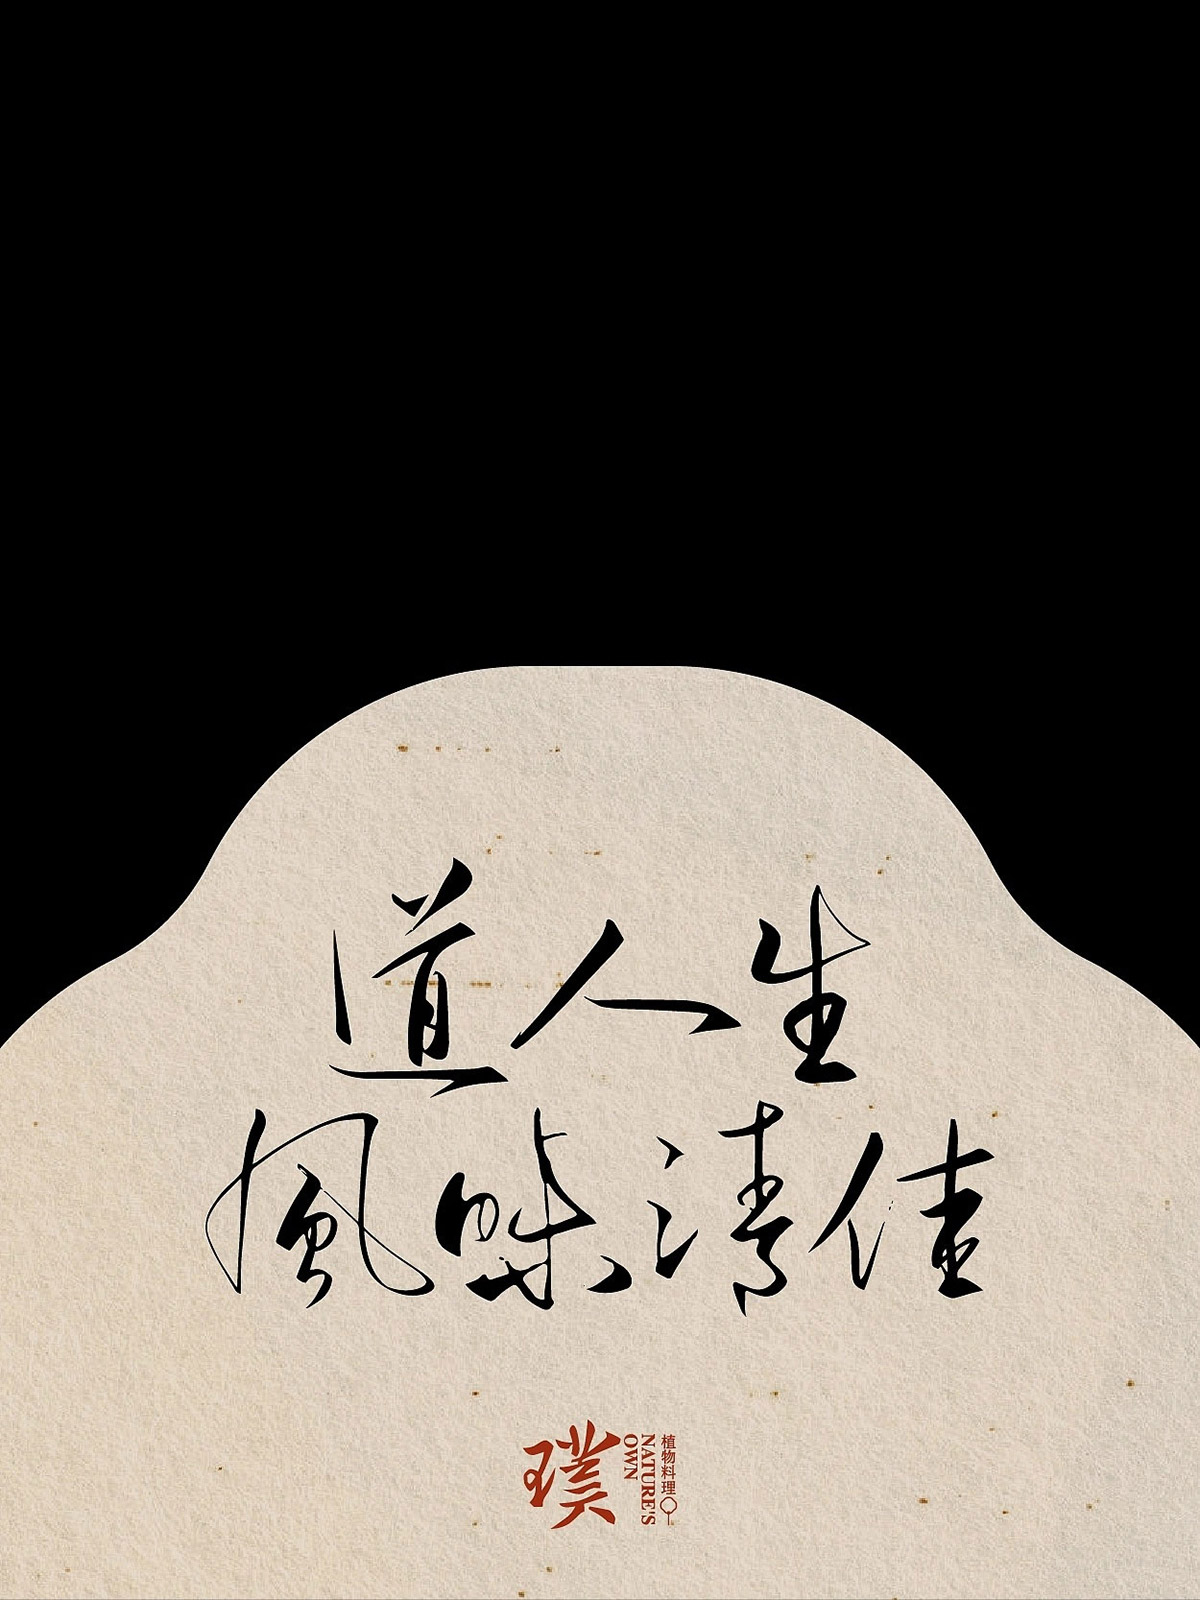 道人生
風味清佳
璞
NATURE'S
OWN
植物料理